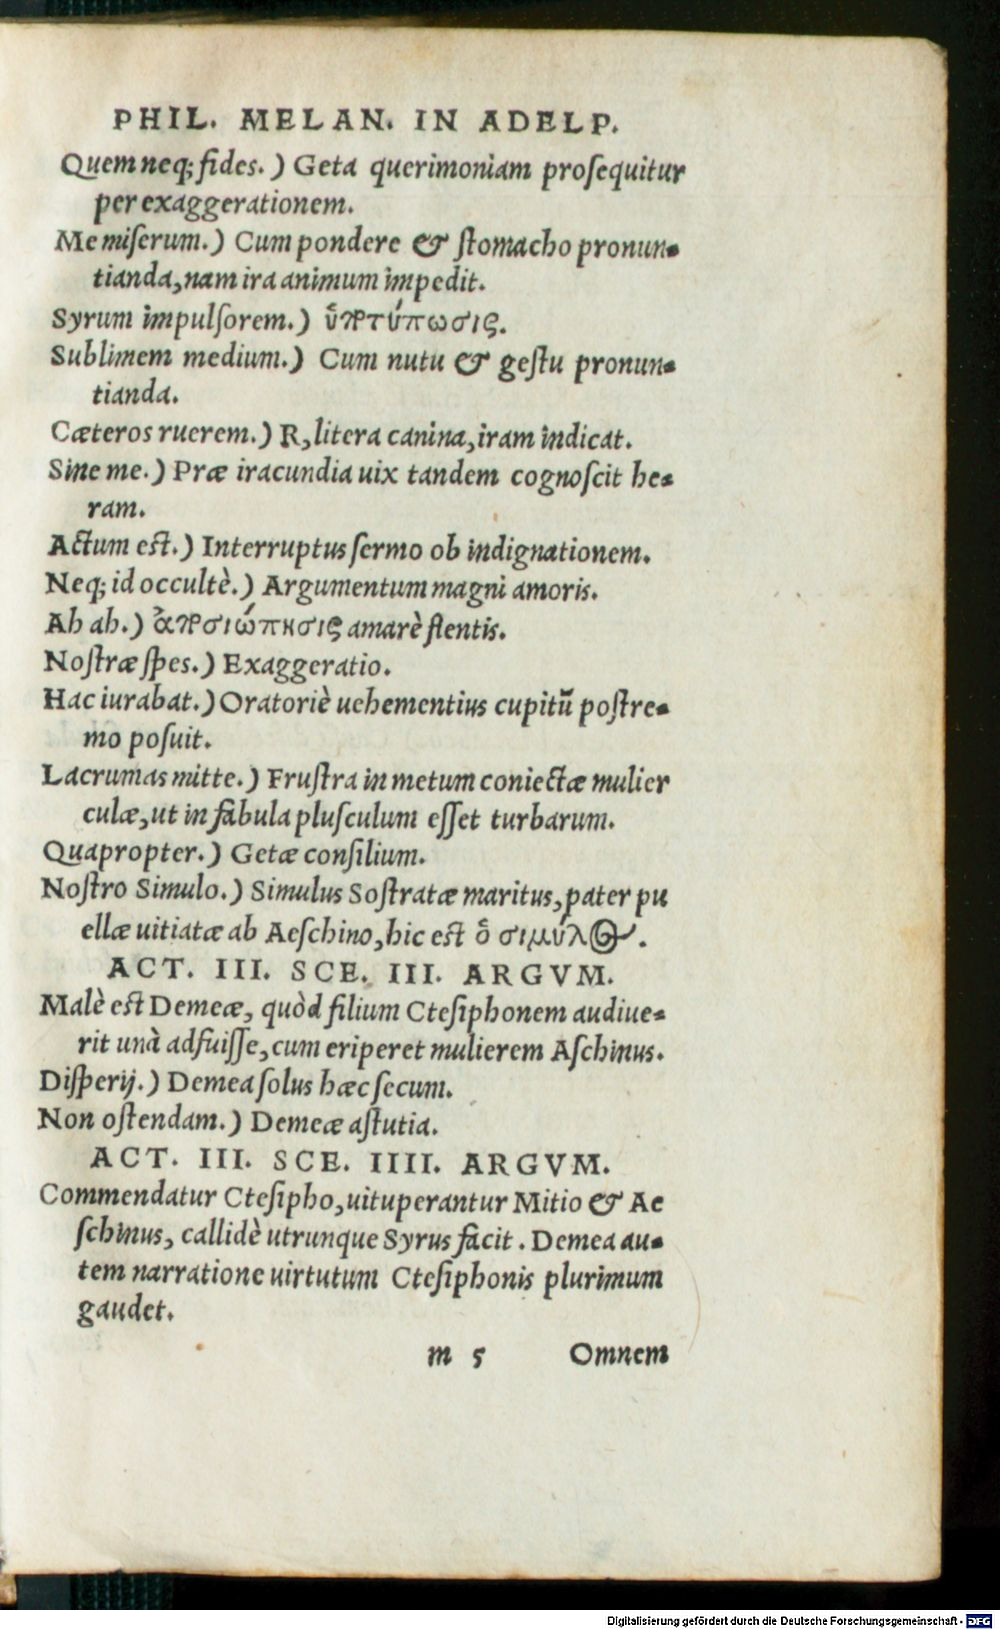 PHIL. MELAN. IN ADELP.
Quem neq; fides.) Geta querimoniam proſequitur
per exaggerationem.
Me miſerum.) Cum pondere & ſtomacho pronun-
tianda, nam ira animum impedit.
Syrum impulſorem.) ὑποτύπωσις.
Sublimem medium.) Cum nutu & geſtu pronun-
tianda.
Cæteros ruerem.) R, litera canina, iram indicat.
Sine me.) Præ iracundia uix tandem cognoſcit he-
ram.
Actum eſt.) Interruptus ſermo ob indignationem.
Neq; id occultè.) Argumentum magni amoris.
Ah ah.) ἀποσιώπησις amarè flentis.
Noſtræ ſpes.) Exaggeratio.
Hac iurabat.) Oratoriè uehementius cupitū poſtre-
mo poſuit.
Lacrumas mitte.) Fruſtra in metum coniectæ mulier
culæ, ut in fabula pluſculum eſſet turbarum.
Quapropter.) Getæ conſilium.
Noſtro Simulo.) Simulus Soſtratæ maritus, pater pu
ellæ uitiatæ ab Aeſchino, hic eſt ὁ σιμύλος.
ACT. III. SCE. III. ARGVM.
Malè eſt Demeæ, quòd filium Cteſiphonem audiue-
rit unà adfuiſſe, cum eriperet mulierem Aſchinus.
Diſperij.) Demea ſolus hæc ſecum.
Non oſtendam.) Demeæ aſtutia.
ACT. III. SCE. IIII. ARGVM.
Commendatur Cteſipho, uituperantur Mitio & Ae
ſchinus, callidè utrunque Syrus facit. Demea au-
tem narratione uirtutum Cteſiphonis plurimum
gaudet.
m 5 Omnem
Digitalisierung gefördert durch die Deutsche Forschungsgemeinschaft - DFG